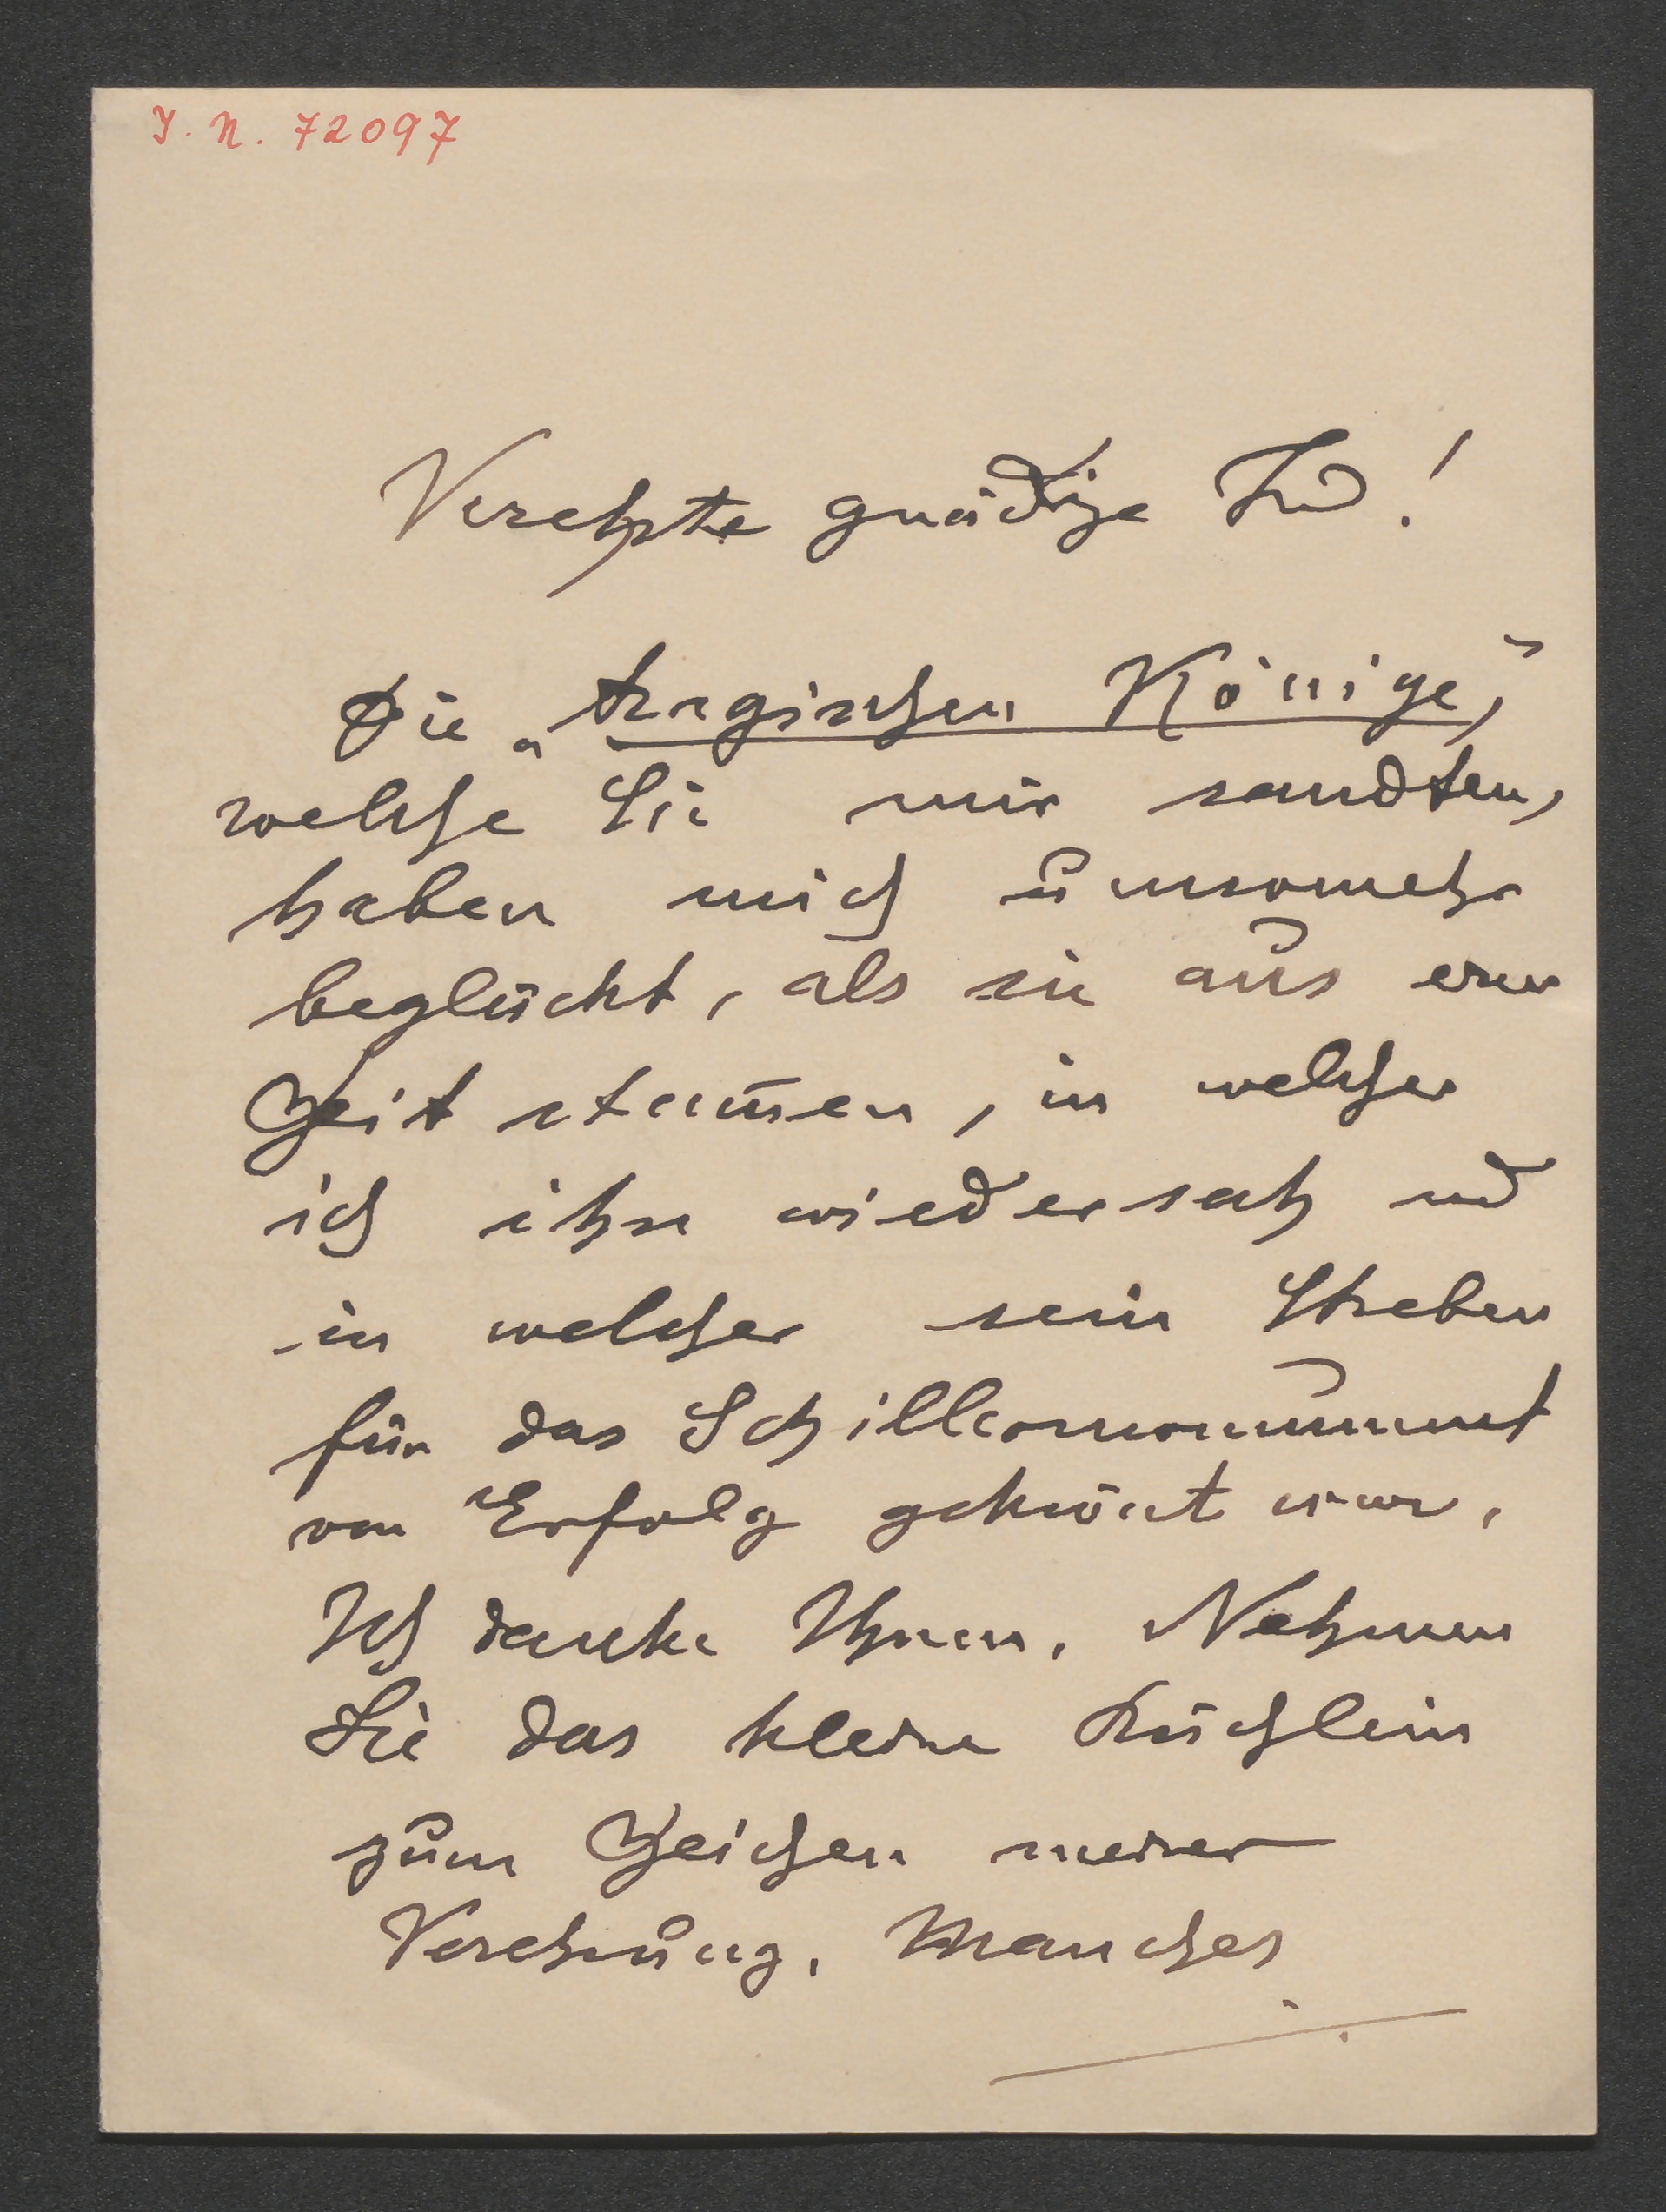 I. N. 72097
Verehrte gnädige Frau!
Die „tragischen Könige",
welche Sie mir sandten,
haben mich umsomehr
beglückt, als sie aus einer
Zeit stam̄en, in welcher
ich ihn wiedersah und
in welcher sein Streben
für das Schillermonument
von Erfolg gekrönt war.
Ich danke Ihnen. Nehmen
Sie das kleine Büchlein
zum Zeichen meiner
Verehrung. Manches